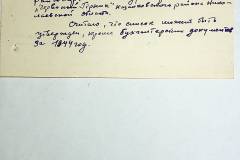 "Червоний Гірник" Казанковского района Нико-
лаевской области.
Считаю, что список может быть
утвержден, кроме бухгалтерских документов
за 1944 год.